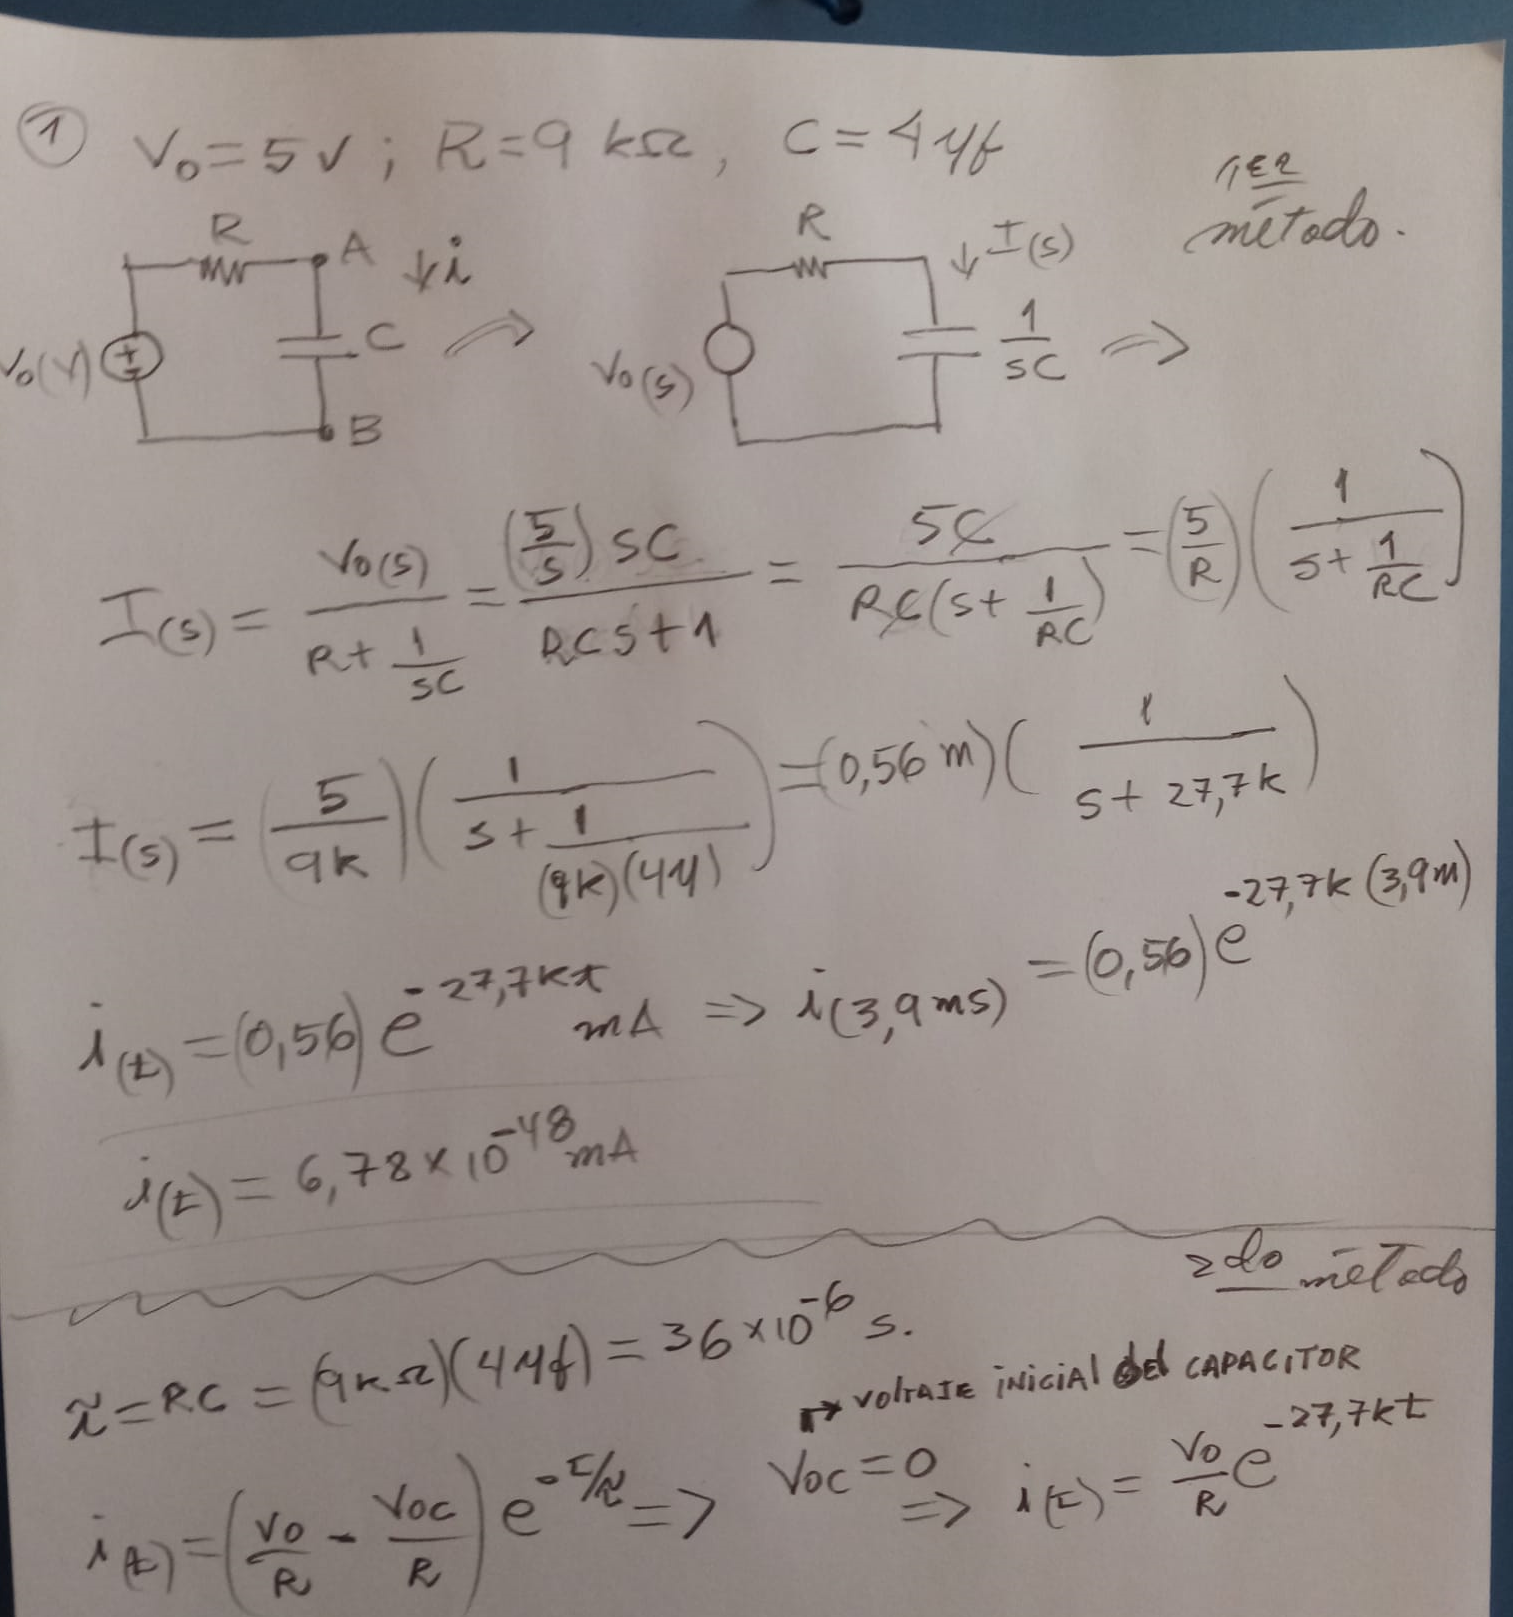 ① V₀ = 5V ; R = 9 kΩ, C = 4 μf
1ER
método.
R A ↓i R ↓ I(s)
V₀(V) + C ⇒ V₀(s) 1/sC ⇒
B
I(s) = V₀(s)/(R + 1/sC) = (5/s) sC/(RCs + 1) = 5C/(RC(s + 1/RC)) = (5/R)(1/(s + 1/RC))
I(s) = (5/9k)(1/(s + 1/((9k)(4μ)))) = (0,56 m)(1/(s + 27,7k))
i(t) = (0,56) e^(-27,7kt) mA ⇒ i(3,9ms) = (0,56) e^(-27,7k(3,9m))
i(t) = 6,78 × 10^-48 mA
2do método
τ = RC = (9kΩ)(4μf) = 36 × 10^-6 s.
↱ VOLTAJE INICIAL DEL CAPACITOR
i(t) = (V₀/R - Voc/R) e^(-t/τ) ⇒ Voc = 0 ⇒ i(t) = V₀/R e^(-27,7kt)